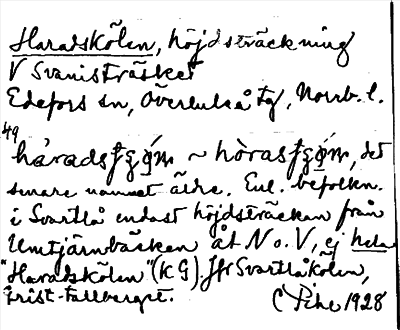 Haradskölen, höjdsträckning
V Svanisträsket
Edefors sn, Överluleå tg, Norrb. l.
49
håradsʃɡǫ́ın ~ hòrasʃɡǫ́ın, det
senare namnet äldre. Enl. befolkn.
i Svartlå endast höjdsträckan från
Umtjärnbäcken åt N o. V, ej hela
"Haradskölen" (KG). Jfr Svartlåkölen,
frist. Fallberget.
C Pihe 1928